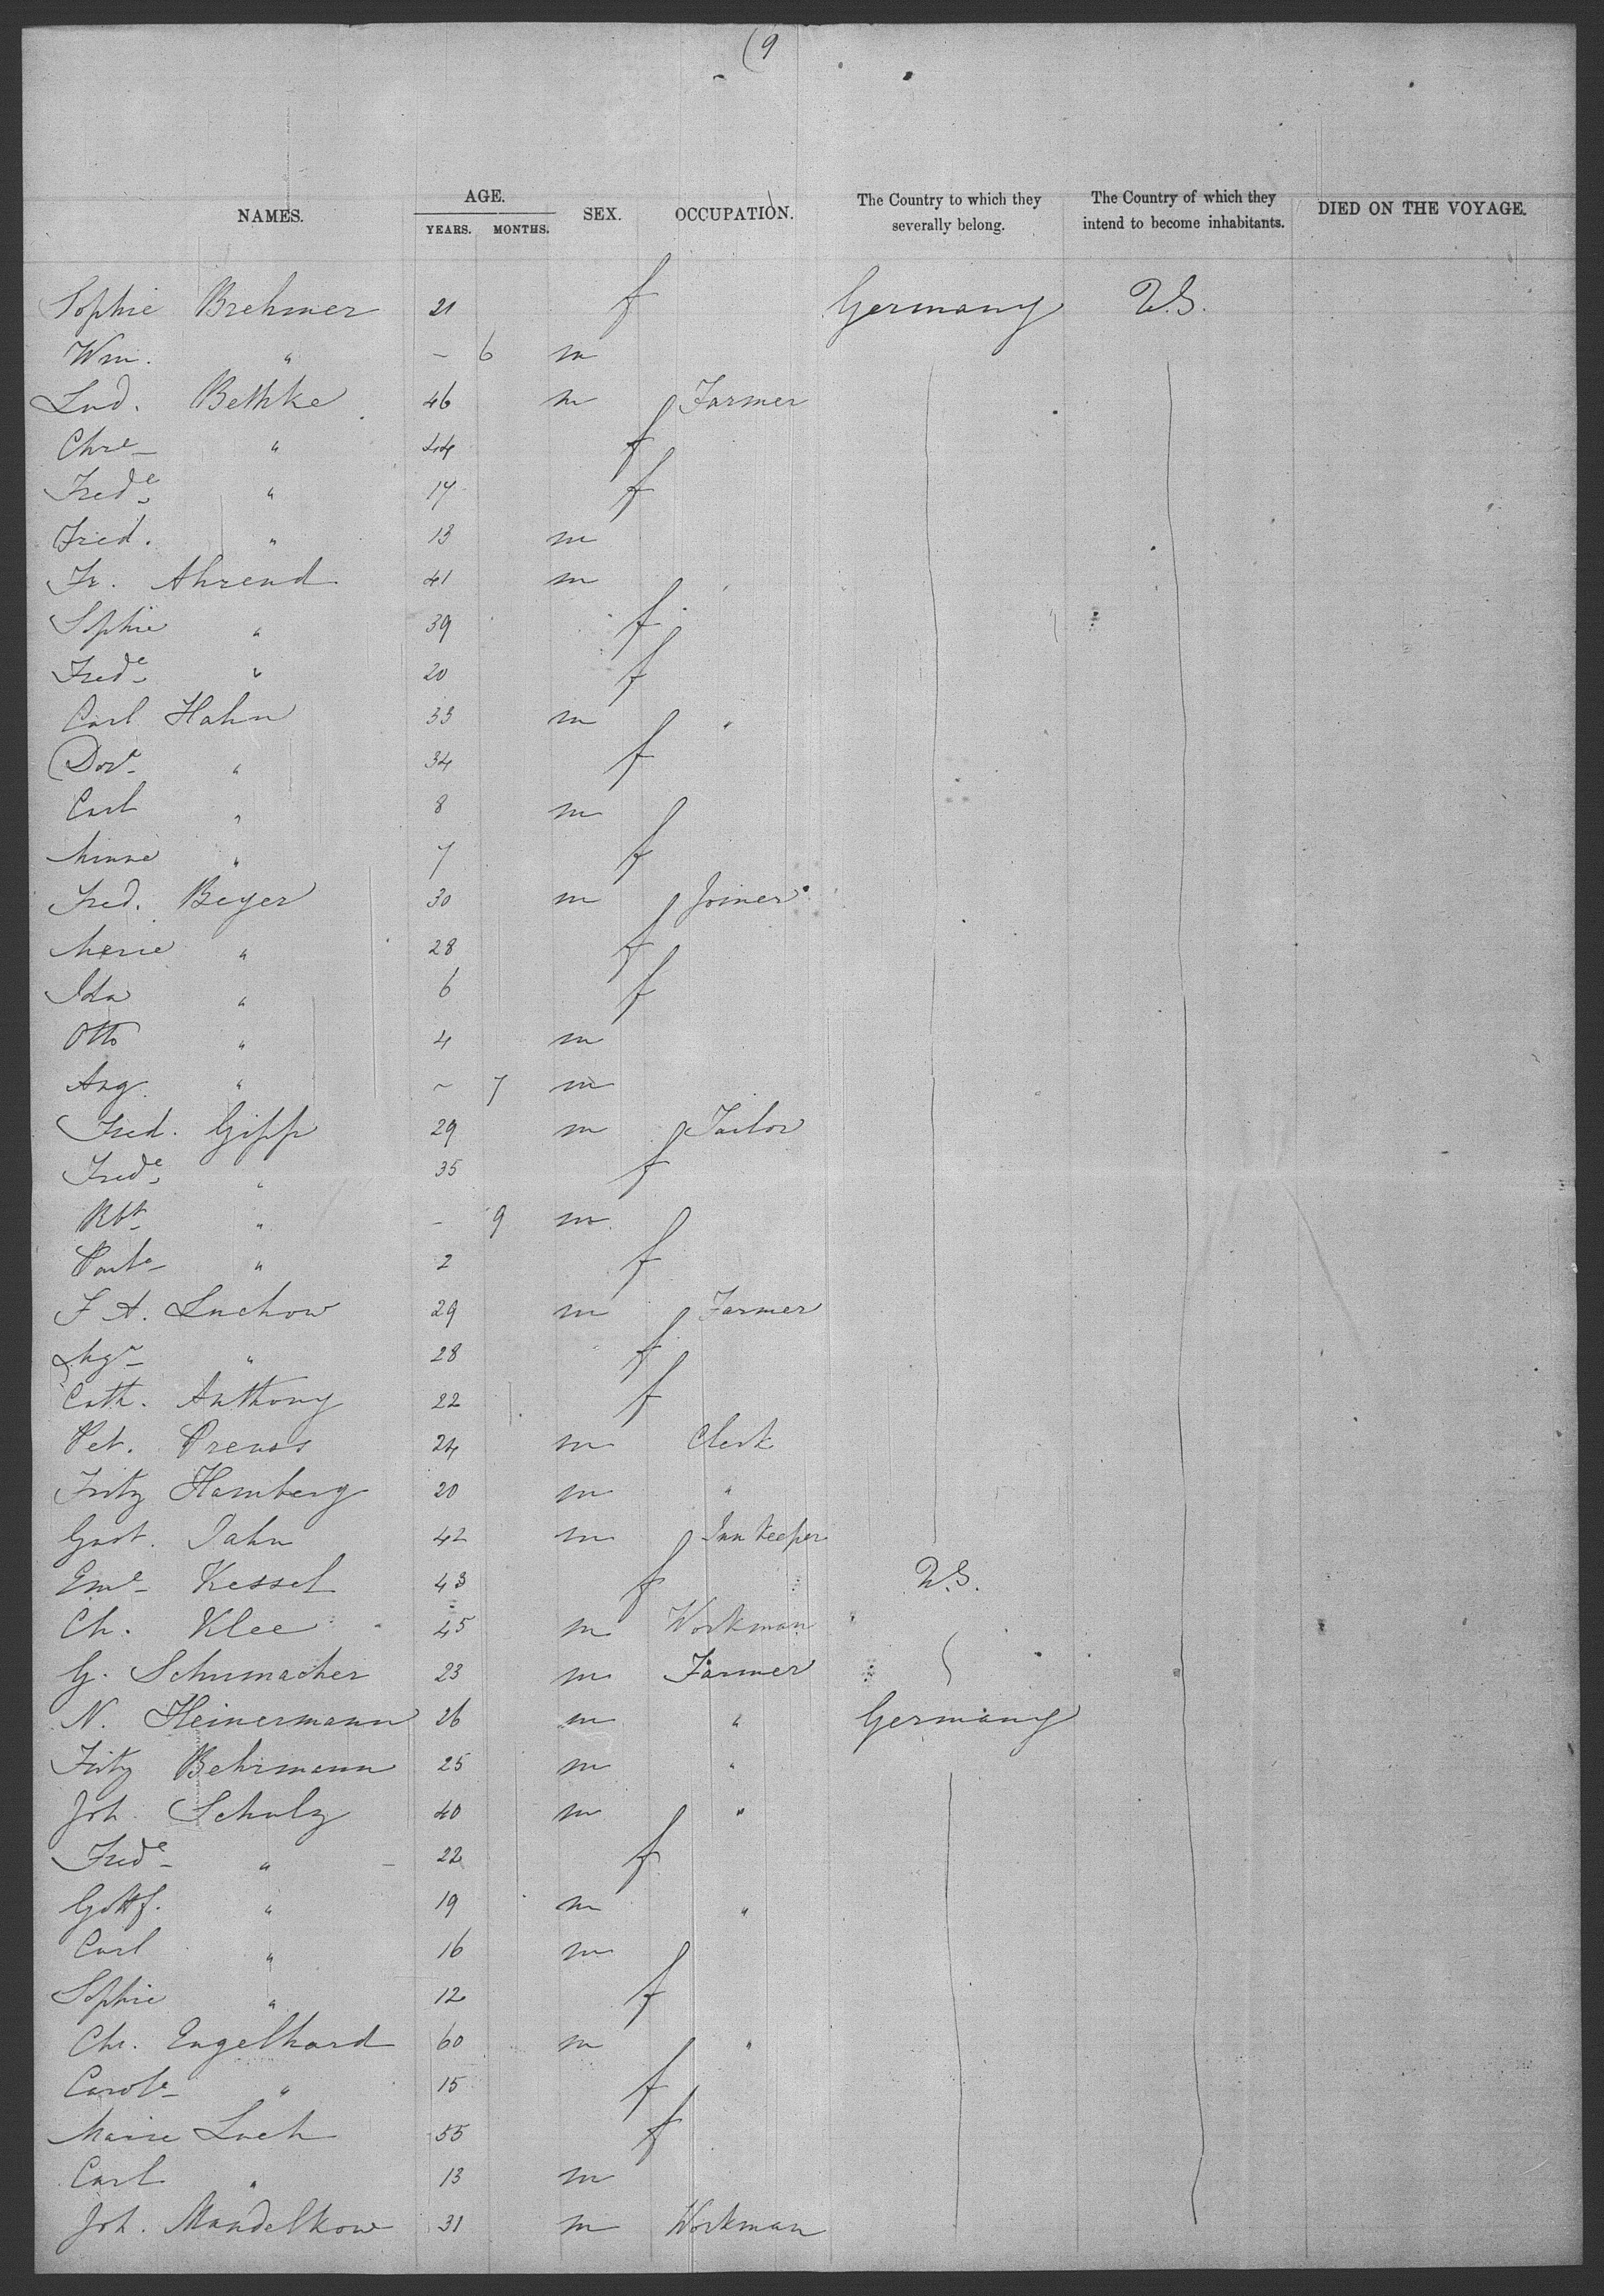 (9
NAMES. AGE. YEARS. MONTHS. SEX. OCCUPATION. The Country to which they severally belong. The Country of which they intend to become inhabitants. DIED ON THE VOYAGE.
Sophie Brehmer 21 f Germany U.S.
Wm. " - 6 m
Lud. Bethke 46 m Farmer
Chre " 44 f
Frede " 17 f
Fred. " 13 m
Fr. Ahrend 41 m
Sophie " 39 f
Frede " 20 f
Carl Hahn 33 m "
Dor. " 34 f
Carl " 8 m
Minna " 7 f
Fred. Beyer 30 m Joiner
Marie " 28 f
Ida " 6 f
Otto " 4 m
Aug. " - 7 m
Fred. Gipp 29 m Tailor
Frede " 35 f
Rbt " - 9 m
" 2 f
F A. Luchow 29 m Farmer
" 28 f
Cath. Anthony 22 f
Pet. Preuss 24 m Clerk
Fritz Hamberg 20 m "
Gust. Jahn 42 m Inn Keeper
Eme Kessel 43 f U.S.
Ch. Klee 45 m Workman
G. Schumacher 23 m Farmer
N. Heinermann 26 m " Germany
Fritz Behrmann 25 m "
Joh. Schulz 40 m "
Frede " 22 f
Gottf. " 19 m "
Carl " 16 m
Sophie " 12 f
Chr. Engelhard 60 m "
Carole " 15 f
Marie Luch 55 f
Carl " 13 m
Joh. Mandelkow 31 m Workman